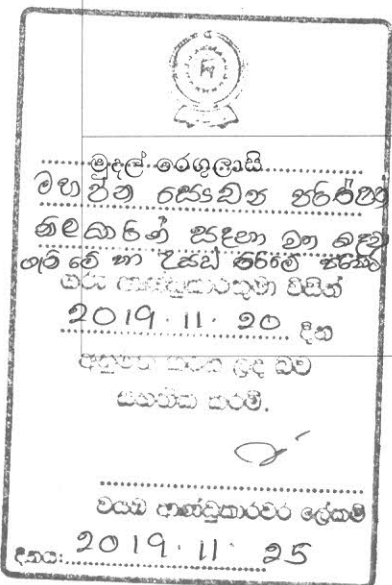 මුදල් රෙගුලාසි
මහජන සෞඛ්‍ය පරීක්ෂ
නිලධාරින් සඳහා වන
ගැනීමේ හා උසස් කිරීමේ
ගරු ආණ්ඩුකාරතුමා විසින්
2019.11.20 දින
අනුමත කරන ලද බව
සහතික කරමි.
වයඹ ආණ්ඩුකාරවර ලේකම්
දිනය: 2019.11.25